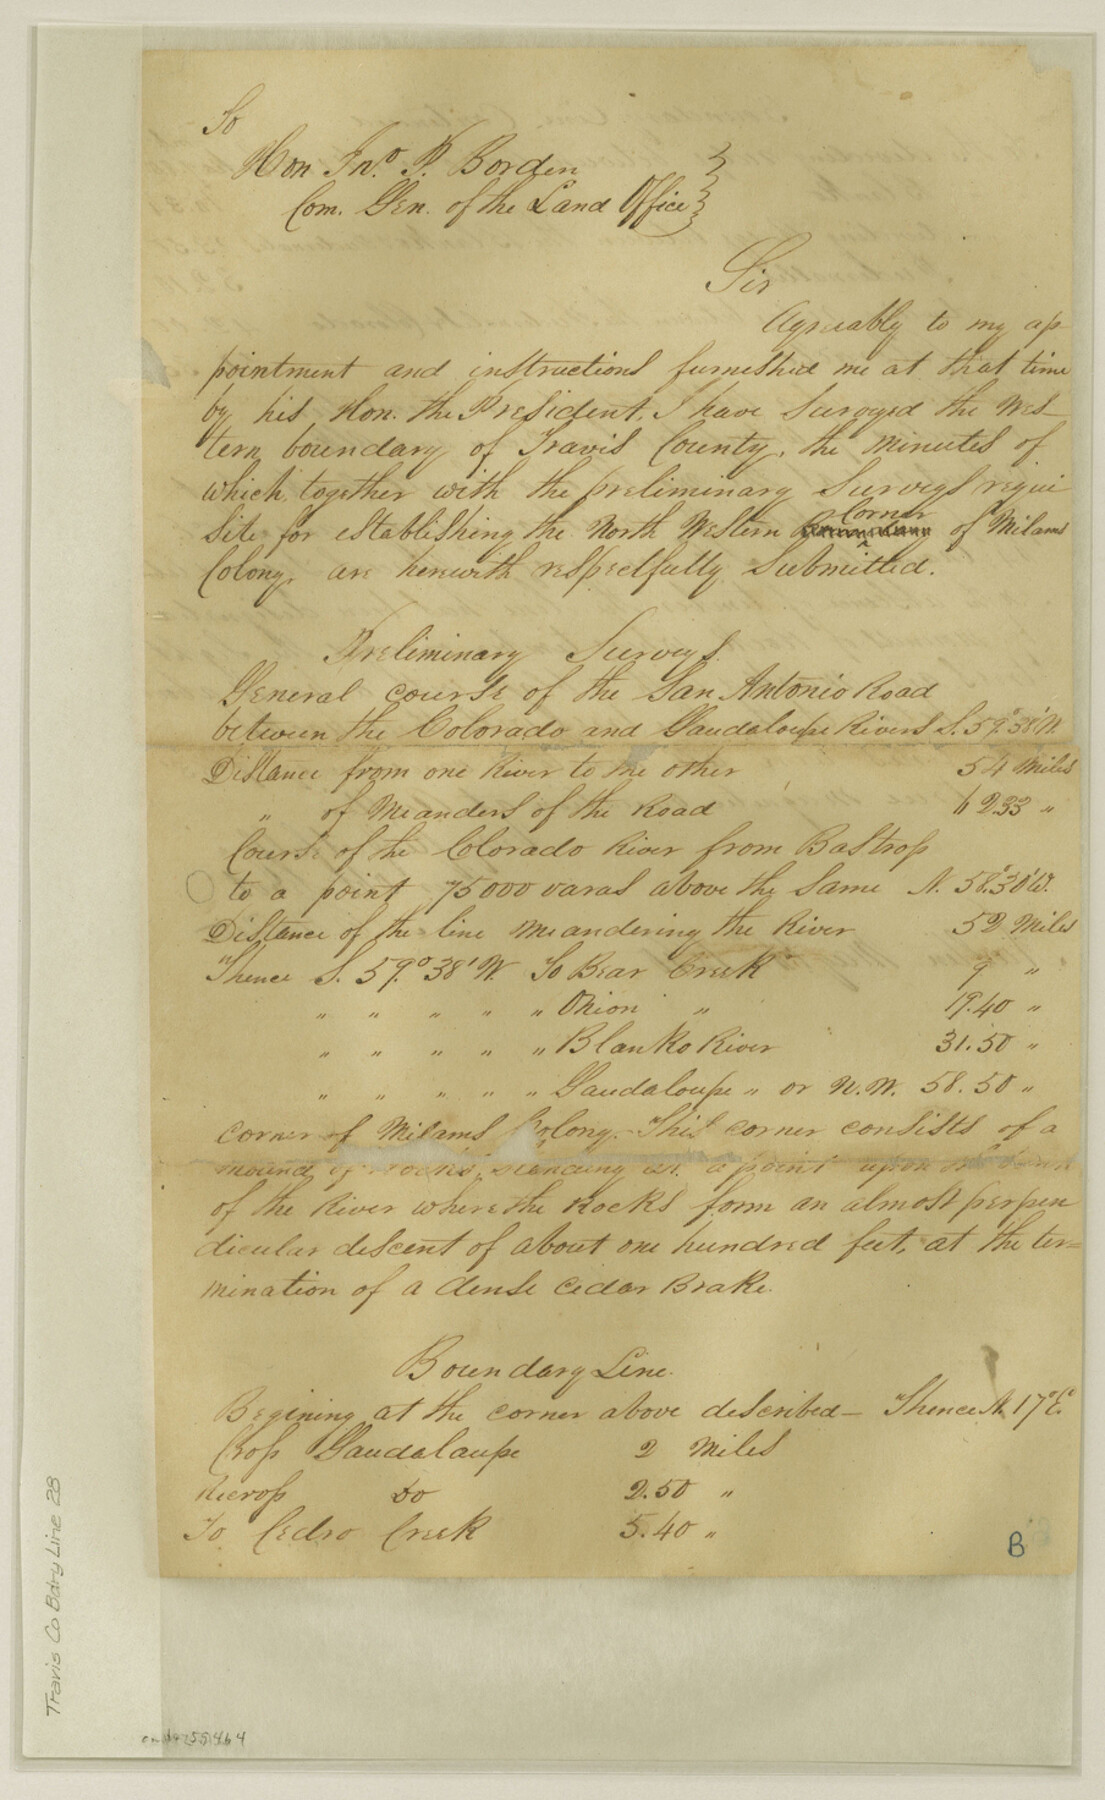 To
Hon Jno. P. Borden
Com. Gen. of the Land Office
Sir
Agreeably to my ap-
pointment and instructions furnished me at that time
by his Hon. the President, I have Surveyed the Wes-
tern boundary of Travis County, the minutes of
which, together with the preliminary Surveys requi
site for establishing the North Western Corner of Milams
Colony, are herewith respectfully Submitted.
Preliminary Surveys.
General course of the San Antonio Road
between the Colorado and Gaudaloupe Rivers S. 59°.38' W.
Distance from one River to the other 54 Miles
" of Meanders of the Road 62.33 "
Course of the Colorado River from Bastrop
to a point 75000 varas above the Same N. 58°.30' W.
Distance of the line meandering the River 52 Miles
Thence S. 59°.38' W. To Bear Creek 9 "
" " " " " Onion " 19.40 "
" " " " " Blanko River 31.50 "
" " " " " Gaudaloupe " or N.W. 58.50 "
corner of Milams Colony. This corner consists of a
mound of rocks, standing at a point upon the bank
of the River where the Rocks form an almost perpen
dicular descent of about one hundred feet, at the ter=
mination of a dense Cedar Brake.
Boundary Line.
Begining at the corner above described — Thence N. 17° E.
Cross Gaudalaupe 2 Miles
Recross Do 2.50 "
To Cedro Creek 5.40 "
B
Travis Co Bdry Line 28